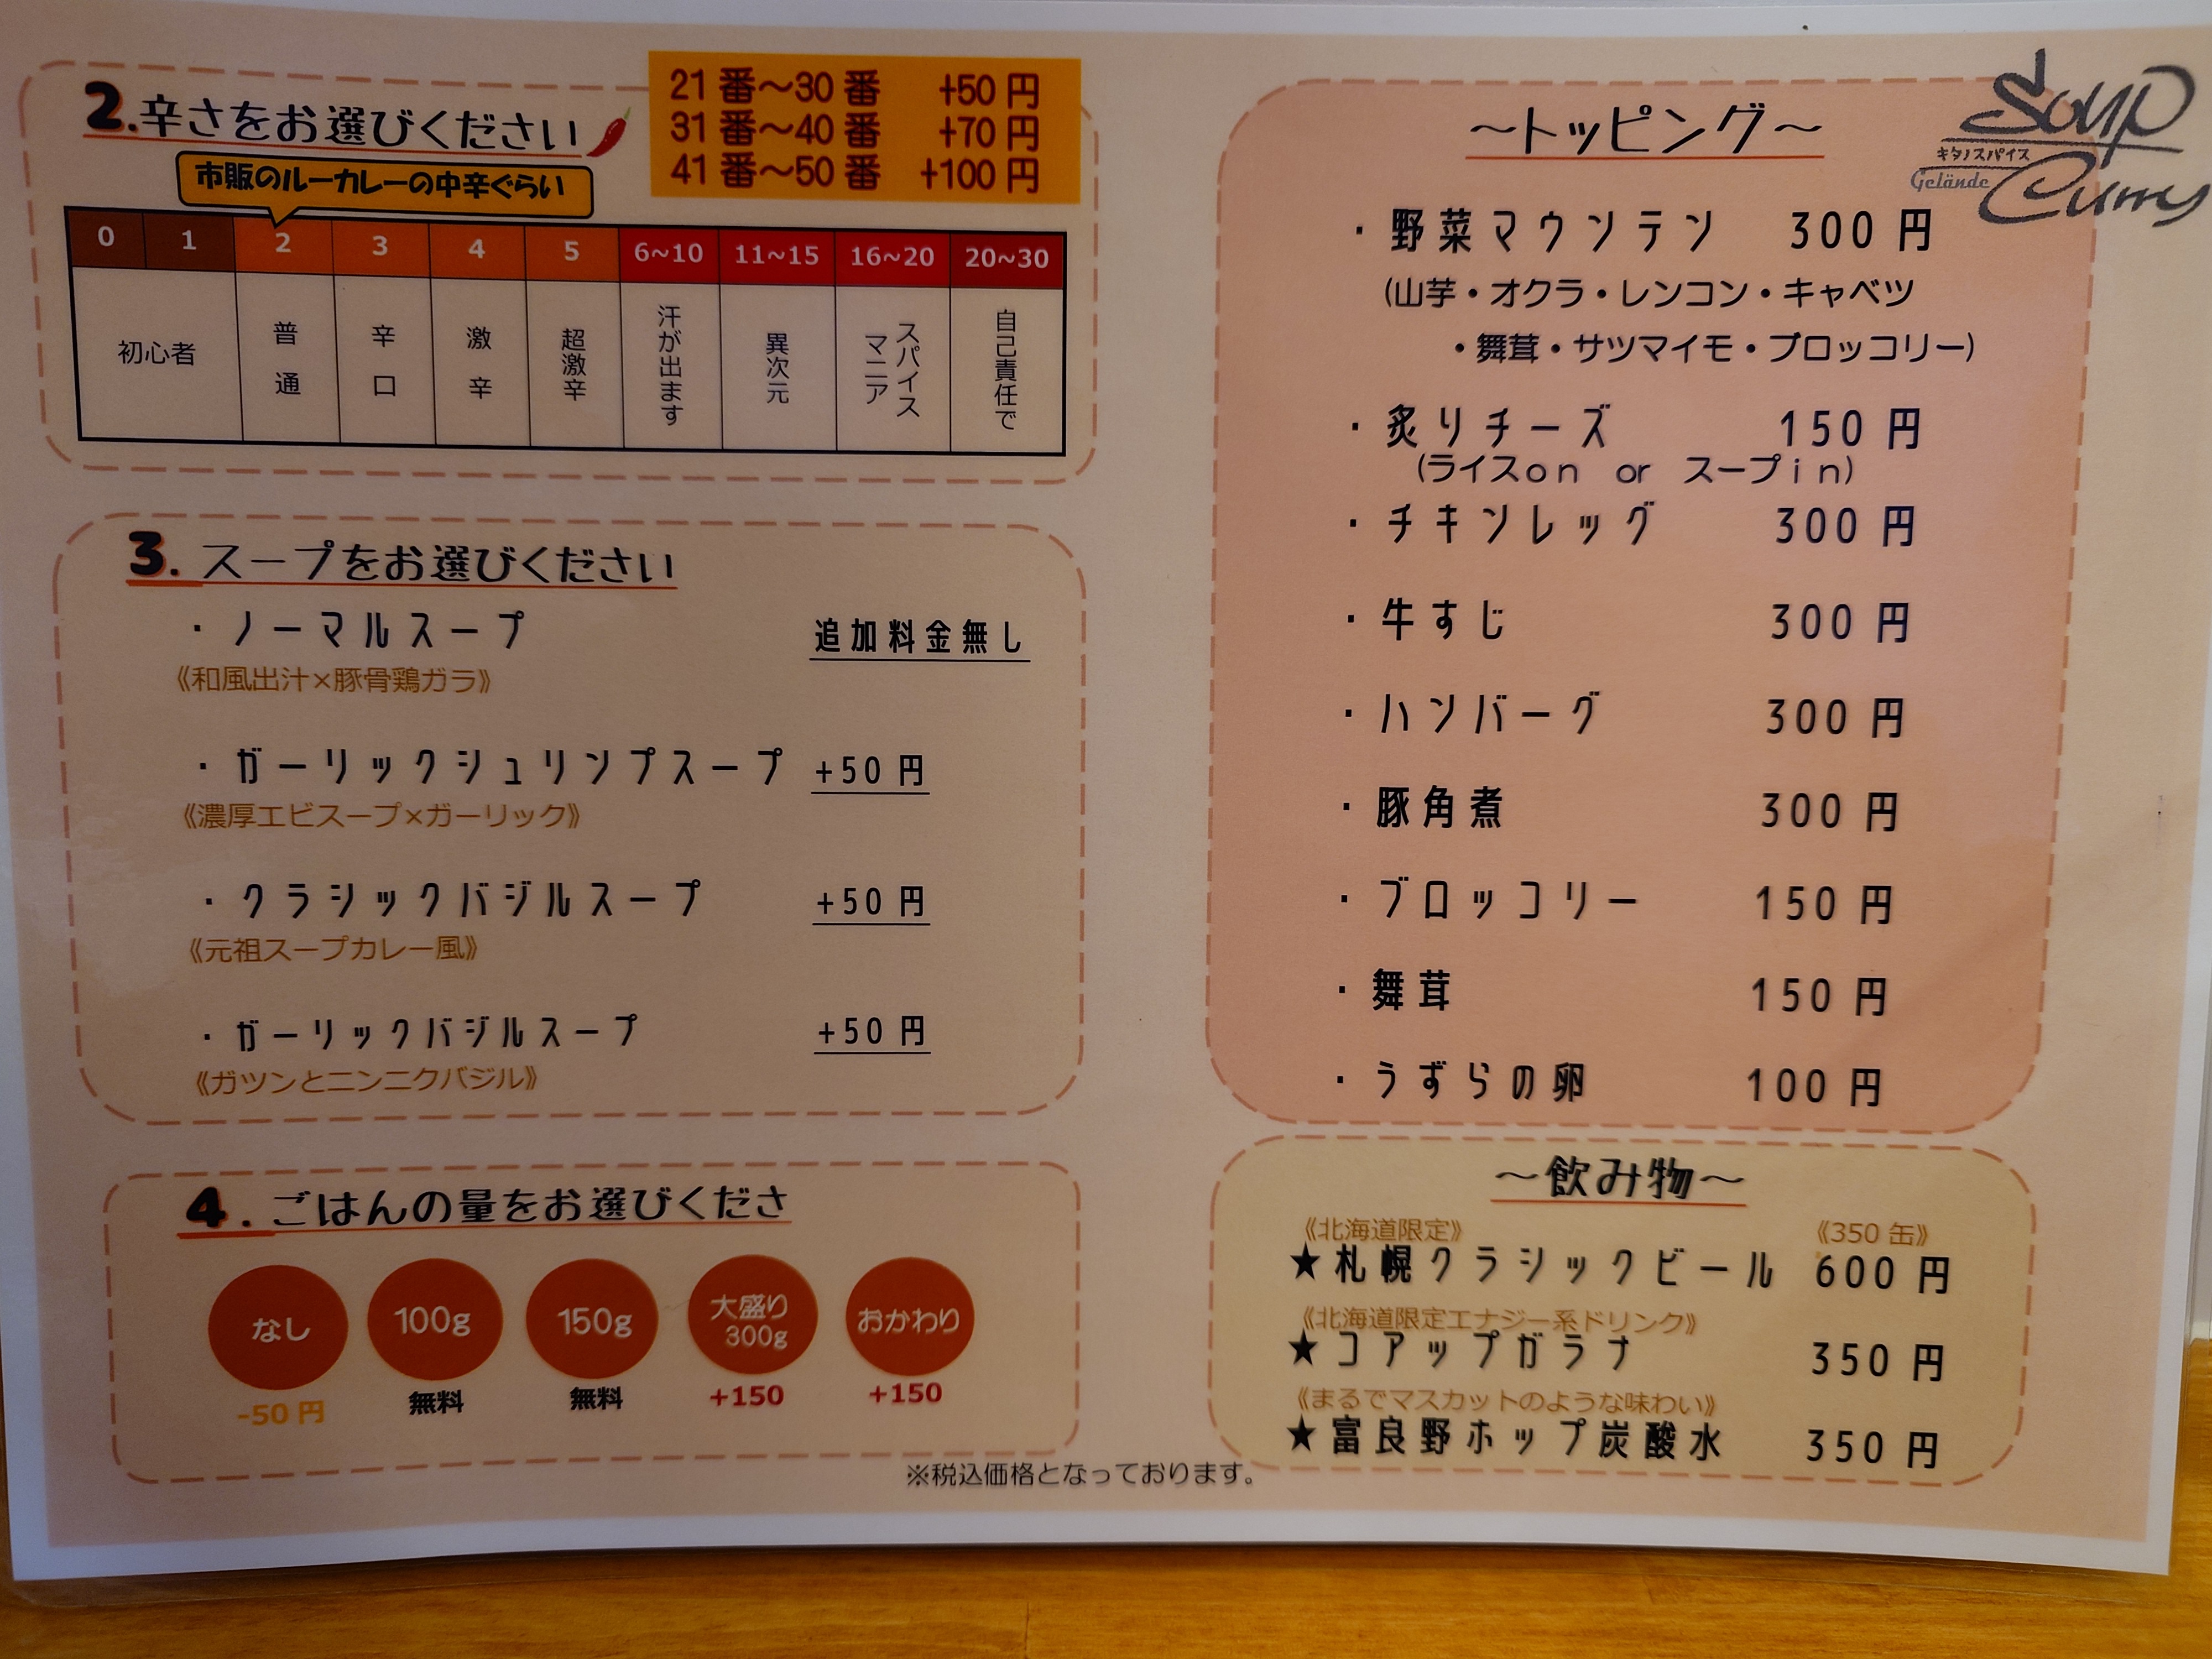 2.辛さをお選びください
21番～30番 +50円
31番～40番 +70円
41番～50番 +100円
市販のルーカレーの中辛ぐらい
0 1 2 3 4 5 6~10 11~15 16~20 20~30
初心者 普通 辛口 激辛 超激辛 汗が出ます 異次元 スパイスマニア 自己責任で
3. スープをお選びください
・ノーマルスープ 追加料金無し
《和風出汁×豚骨鶏ガラ》
・ガーリックシュリンプスープ +50円
《濃厚エビスープ×ガーリック》
・クラシックバジルスープ +50円
《元祖スープカレー風》
・ガーリックバジルスープ +50円
《ガツンとニンニクバジル》
4. ごはんの量をお選びくださ
なし 100g 150g 大盛り300g おかわり
-50円 無料 無料 +150 +150
Soup
キタノスパイス
Gelände
Curry
～トッピング～
・野菜マウンテン 300円
(山芋・オクラ・レンコン・キャベツ
・舞茸・サツマイモ・ブロッコリー)
・炙りチーズ 150円
(ライスon or スープin)
・チキンレッグ 300円
・牛すじ 300円
・ハンバーグ 300円
・豚角煮 300円
・ブロッコリー 150円
・舞茸 150円
・うずらの卵 100円
～飲み物～
《北海道限定》 《350缶》
★札幌クラシックビール 600円
《北海道限定エナジー系ドリンク》
★コアップガラナ 350円
《まるでマスカットのような味わい》
★富良野ホップ炭酸水 350円
※税込価格となっております。